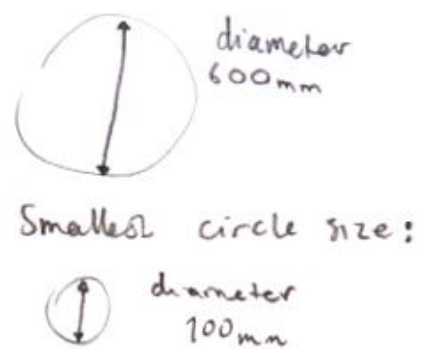 diameter
600mm
Smallest circle size:
diameter
100mm